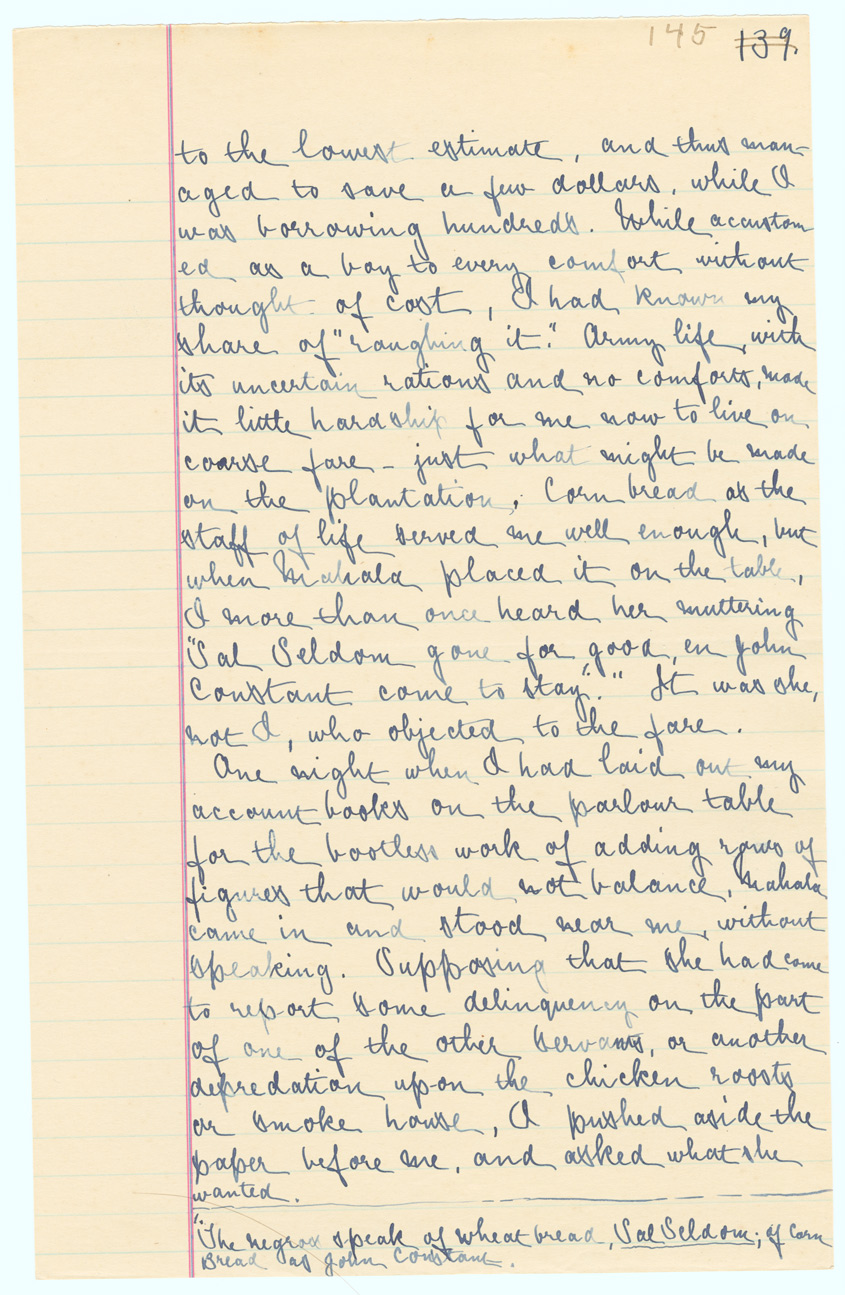 145 139.
to the lowest estimate, and thus man-
aged to save a few dollars, while I
was borrowing hundreds. While accustom
ed as a boy to every comfort without
thought of cost, I had known my
share of "roughing it." Army life, with
its uncertain rations and no comforts, made
it little hardship for me now to live on
coarse fare - just what might be made
on the plantation, Corn bread as the
staff of life served me well enough, but
when Mahala placed it on the table,
I more than once heard her muttering
"Sal Seldom gone for good, en John
Constant come to stay"." It was she,
not I, who objected to the fare.
One night when I had laid out my
account books on the parlour table
for the bootless work of adding rows of
figures that would not balance, Mahala
came in and stood near me, without
speaking. Supposing that she had come
to report some delinquency on the part
of one of the other servants, or another
depredation upon the chicken roosts
or smoke house, I pushed aside the
paper before me, and asked what she
wanted.
"The negroes speak of wheat bread, Sal Seldom; of Corn
Bread as John Constant.